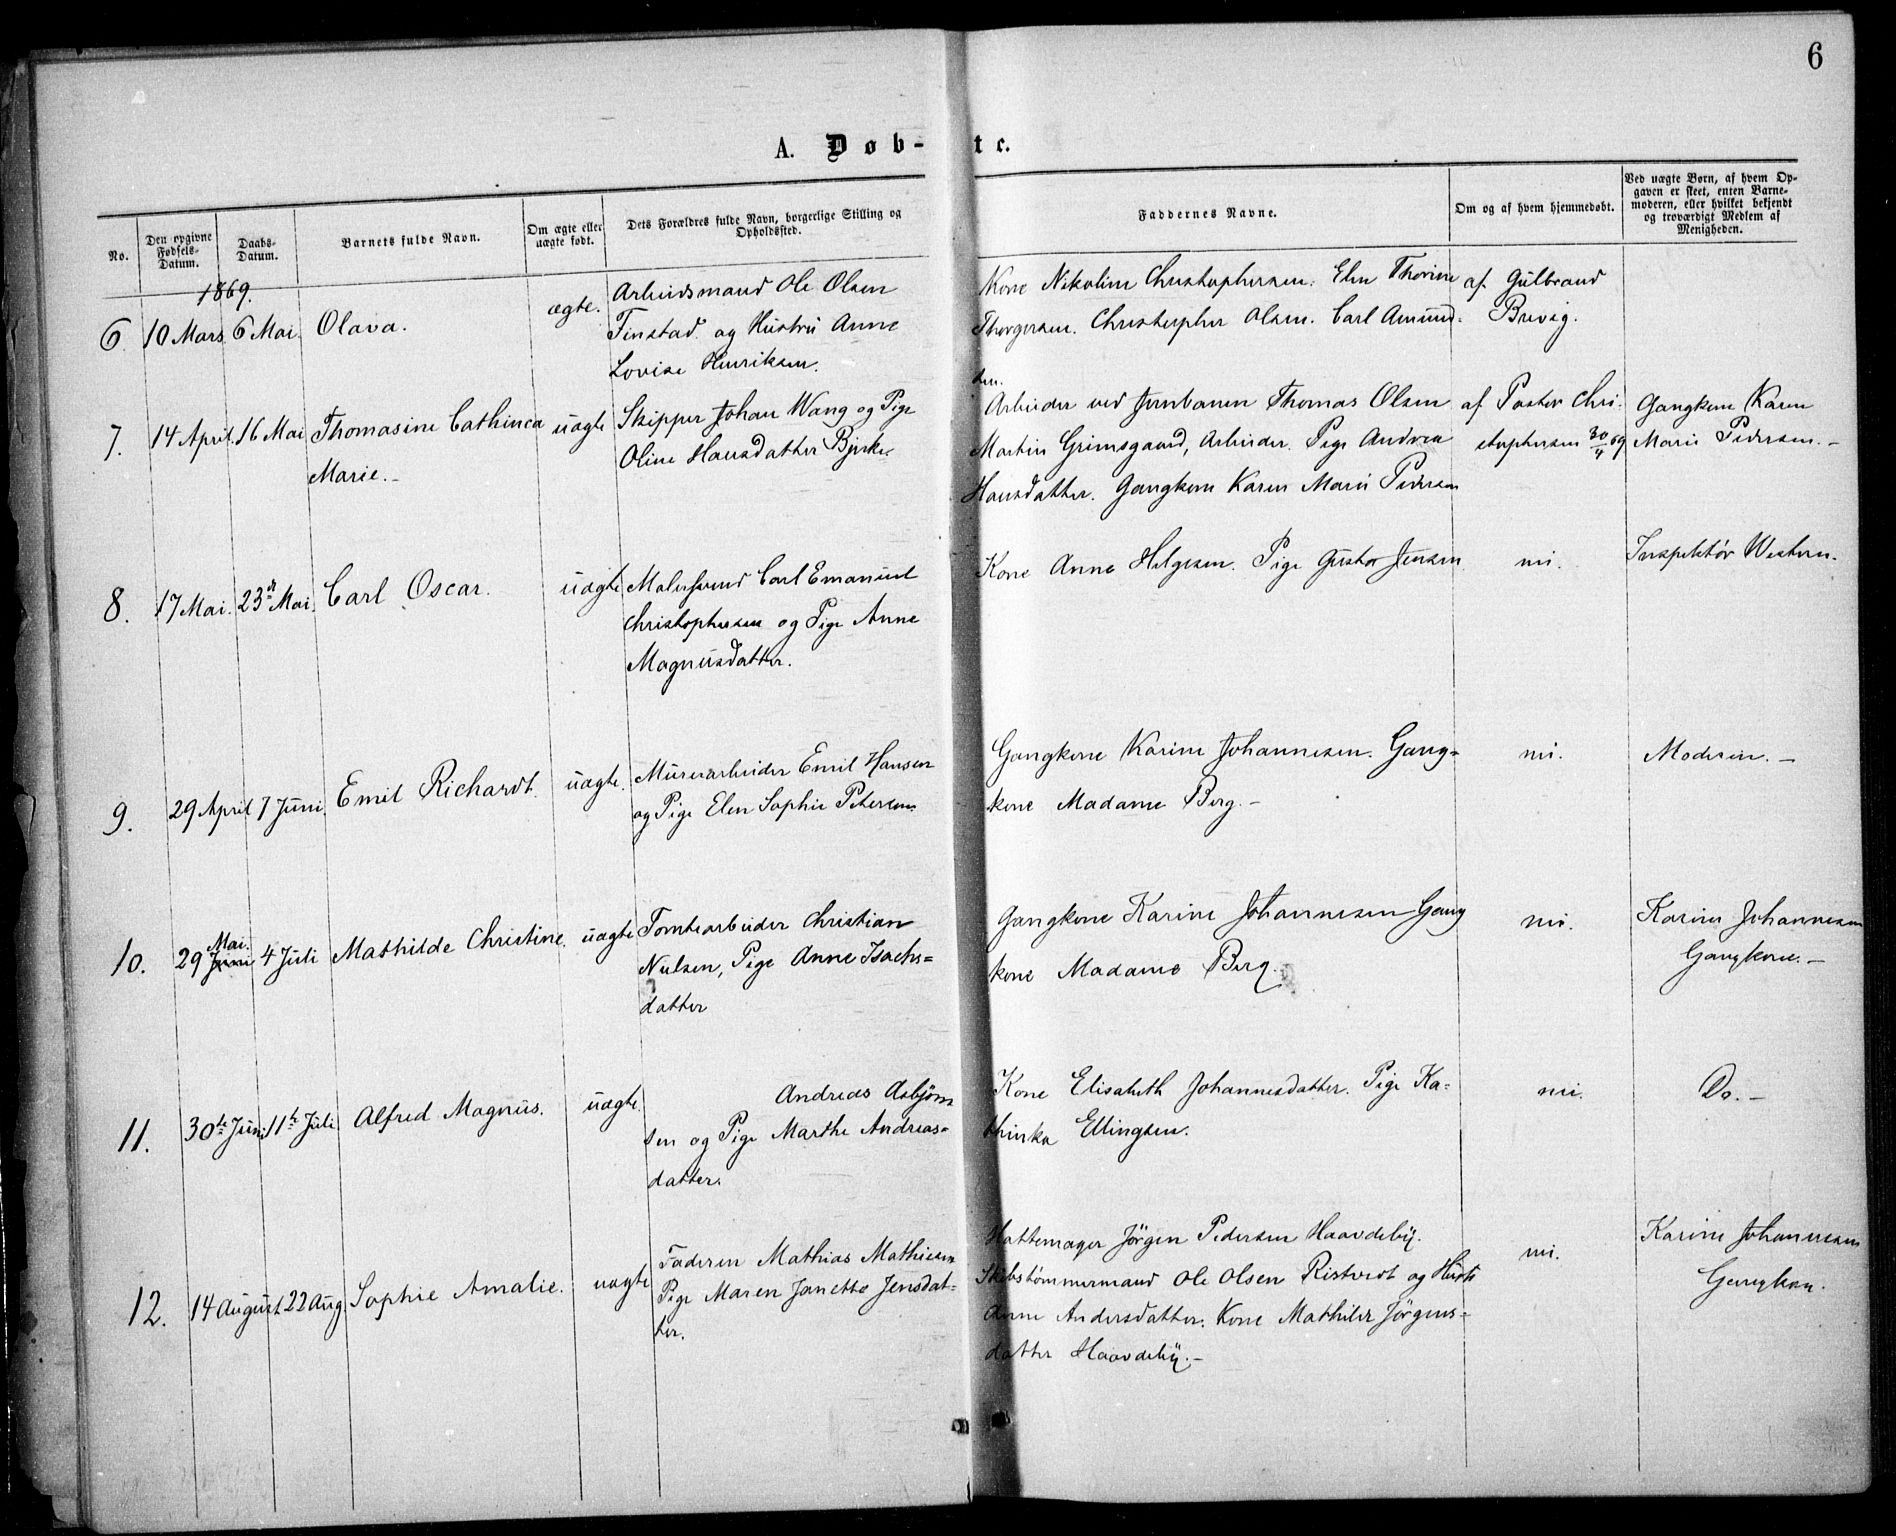 6
A. Døb-te.
No.
Den opgivne Fødsels-Datum.
Daabs-Datum.
Barnets fulde Navn.
Om ægte eller uægte født.
Dets Forældres fulde Navn, borgerlige Stilling og Opholdssted.
Faddernes Navne.
Om og af hvem hjemmedøbt.
Ved uægte Børn, af hvem Op-
gaven er skeet, enten Barne-
moderen, eller hvilket bekjendt
og troværdigt Medlem af
Menigheden.
1869.
6. 10 Mars 6 Mai. Olava. ægte.
Arbeidsmand Ole Olsen
Finstad og Hustru Anne
Lovise Henriksen.
Kone Nikoline Christophersen. Elen Thorine
Thorgersen. Christopher Olsen. Carl Amund-
sen.
af Gulbrand
Brevig.
7. 14 April 16 Mai Thomasine Cathinca
Marie.-
uægte
Skipper Johan Wang og Pige
Oline Hansdatter Bjerke
Arbeider ved Jernbanen Thomas Olsen
Martin Grimsgaard, Arbeider. Pige Andrea
Hansdatter. Gangkone Karen Marie Pedersen
af Pastor Chri-
stophersen 30/4 69
Gangkone Karen
Marie Pedersen.-
8. 17 Mai. 23de Mai. Carl Oscar. uægte
Malersvend Carl Emanuel
Christophersen og Pige Anne
Magnusdatter.
Kone Anne Helgesen. Pige Gusta Jensen
nei.
Inspektør Western.
9. 29 April 7 Juni. Emil Richardt. uægte.
Murerarbeider Emil Hansen
og Pige Elen Sophie Petersen
Gangkone Karine Johannesen. Gang-
kone Madame Berg.-
nei.
Moderen.-
10. 29 Juni Mai. 4 Juli Mathilde Christine. uægte
Tomtearbeider Christian
Nielsen, Pige Anne Isachs-
datter
Gangkone Karine Johannesen Gang
kone Madame Berg.
nei.
Karine Johannesen
Gangkone.-
11. 30te Juni 11te Juli Alfred Magnus. uægte.
Andreas Asbjørn
sen og Pige Marthe Andreas-
datter.
Kone Elisabeth Johannesdatter. Pige Ka-
thinka Ellingsen.
nei.
Do.-
12. 14 August 22 Aug. Sophie Amalie. uægte
Faderen Mathias Mathiesen
Pige Maren Janette Jensdat-
ter.
Hattemager Jörgen Pedersen Haavdeby.
Skibstömmermand Ole Olsen Ristvedt og Hustr
Anne Andersdatter. Kone Mathilde Jörgens-
datter Haavdeby.-
nei.
Karine Johannesen
Gangkon.